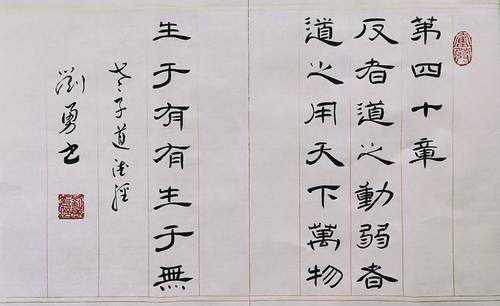 第四十章
反者道之動弱者
道之用天下萬物
生于有有生于無
老子道德經
劉勇書